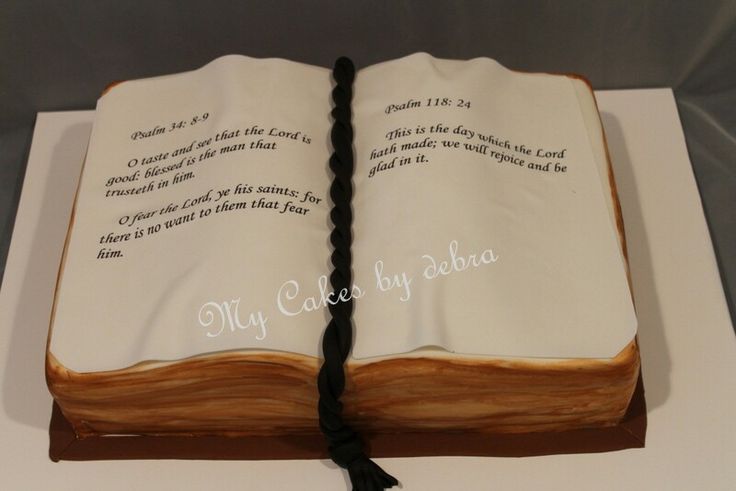 Psalm 34: 8-9
O taste and see that the Lord is
good: blessed is the man that
trusteth in him.
O fear the Lord, ye his saints: for
there is no want to them that fear
him.
Psalm 118: 24
This is the day which the Lord
hath made; we will rejoice and be
glad in it.
My Cakes by debra